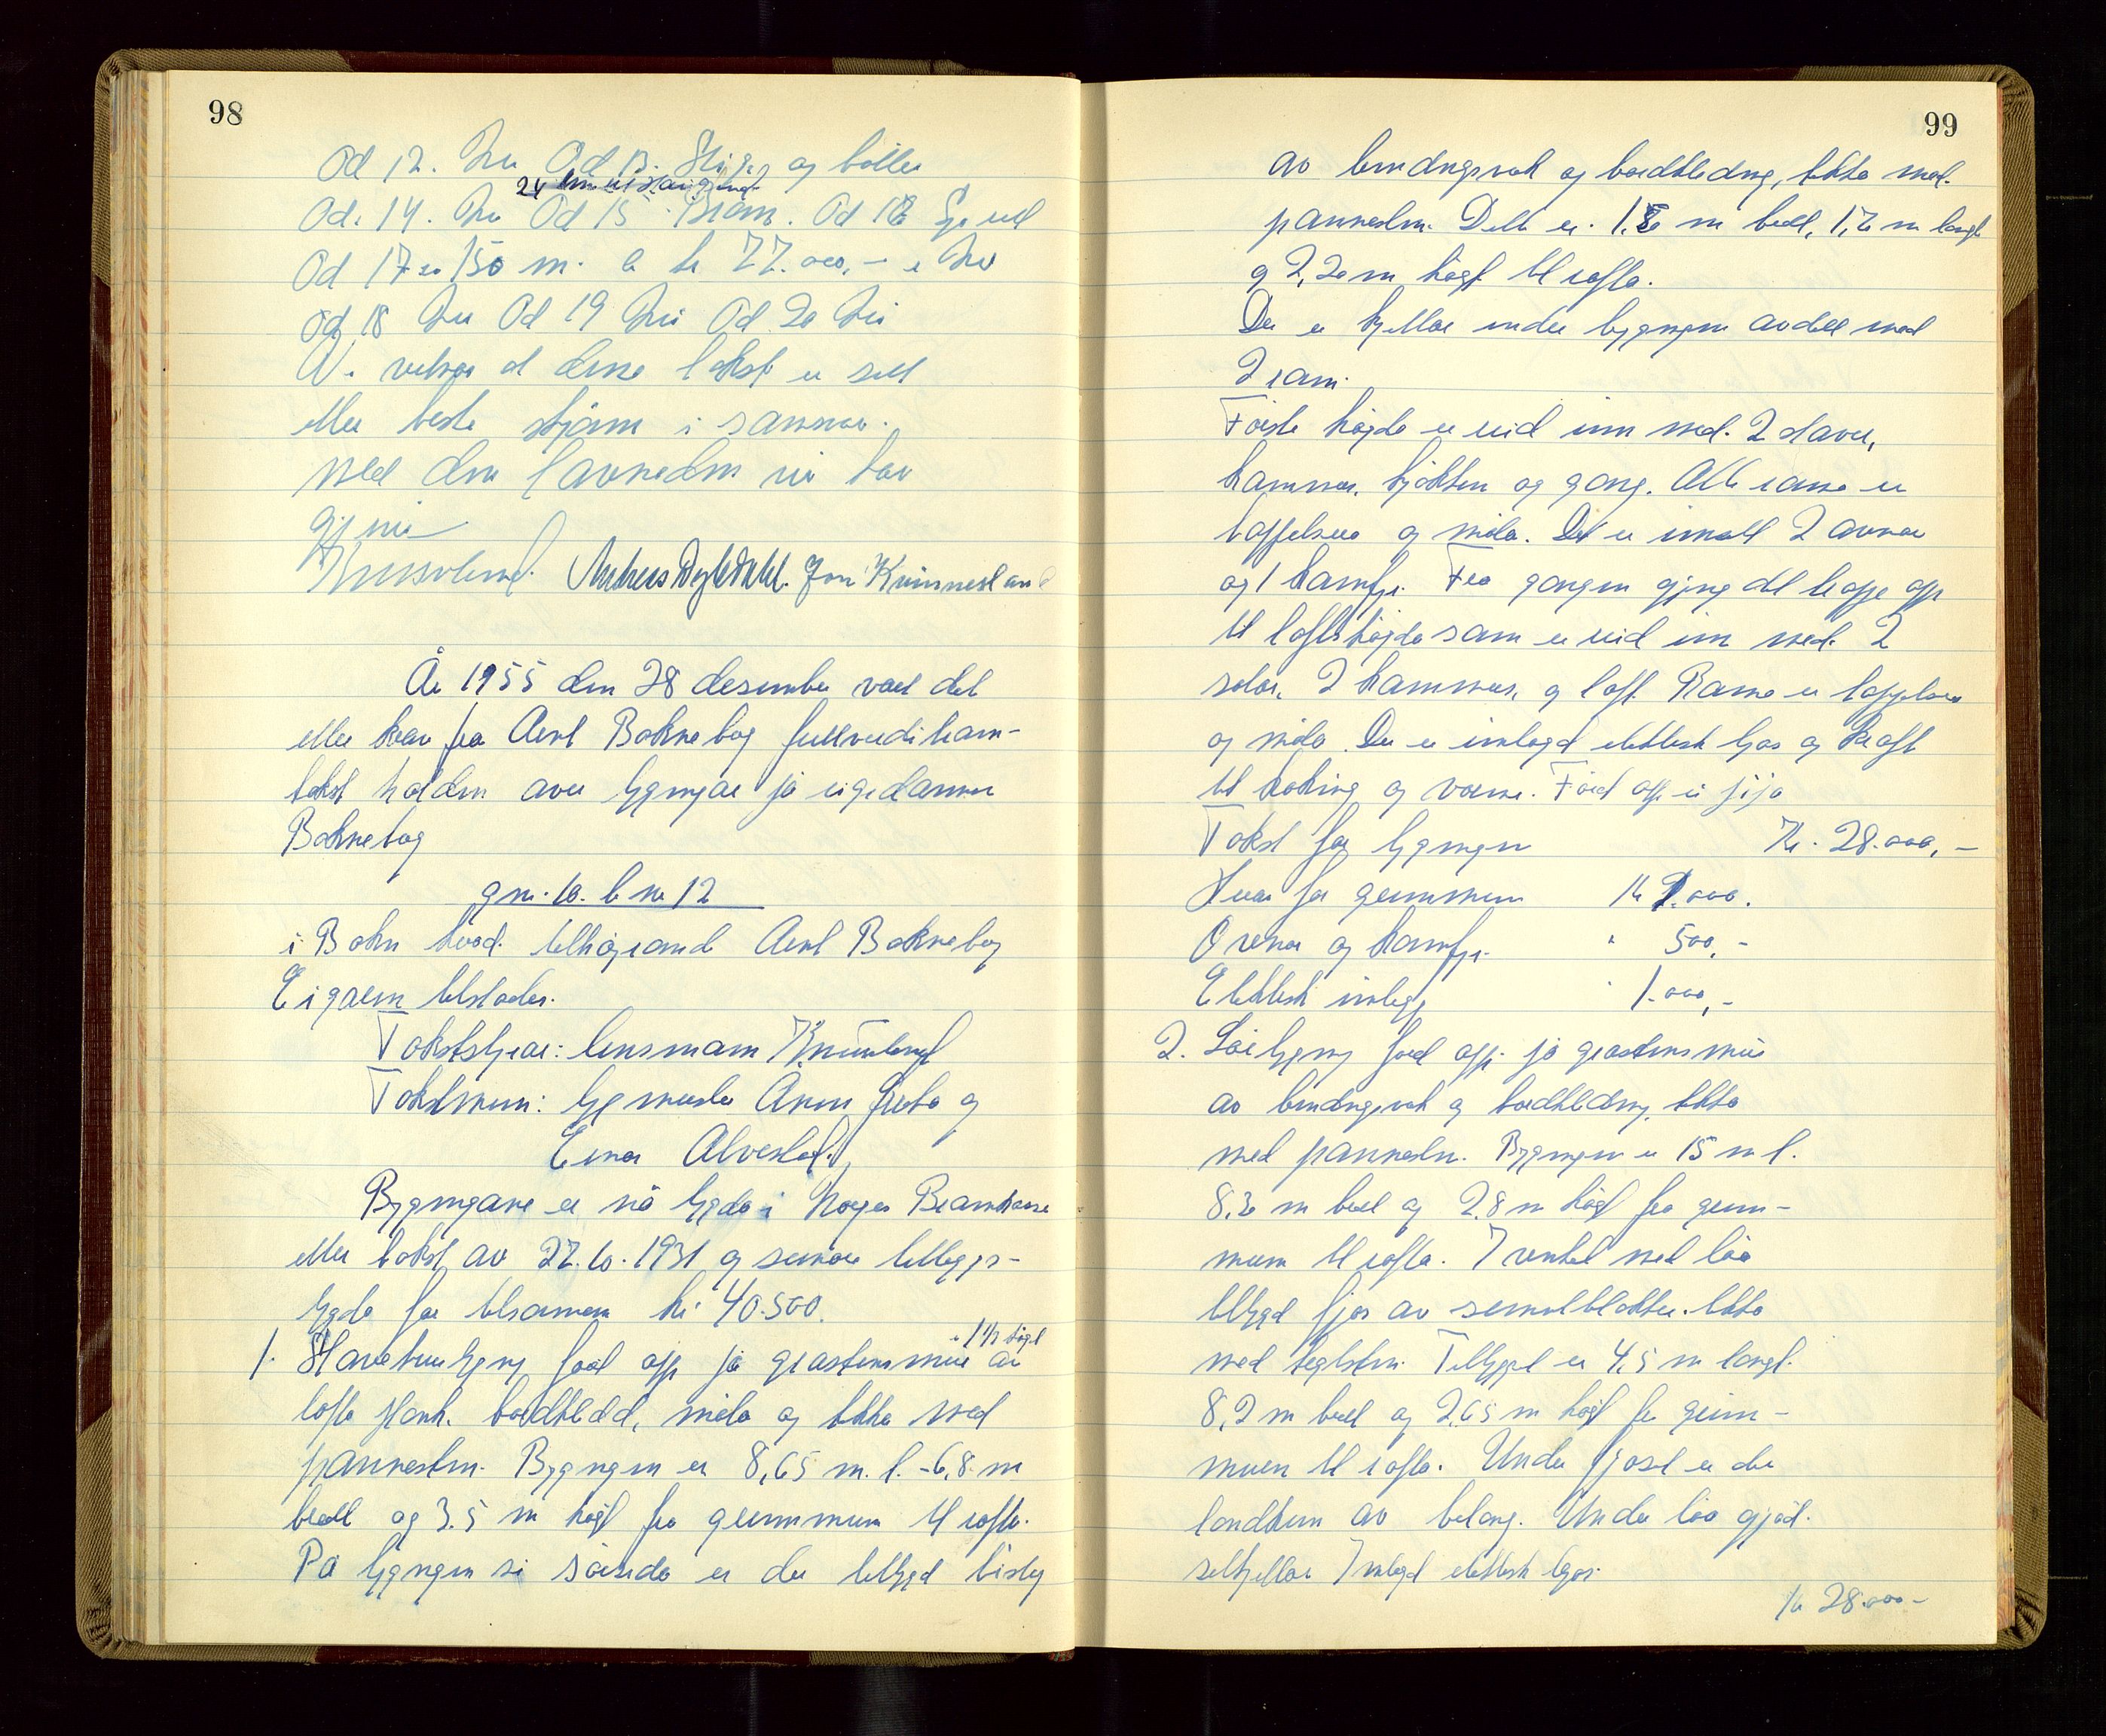 98
Od 12. Nei Od 13. Stige og bøtter
24 km
Od. 14. Nei Od 15. Bram. Od 16
Od 17 ca 150 m. kr 22.000,- Nei
Od 18 Nei Od 19 Nei Od 20 Nei
Vi vitnar at denne takst er sett
etter beste skjøn i samsvar
med den lovnaden vi har
gjeve
Andreas Jon Kvinnesland
År 1955 den 28 desember vart det
etter krav fra Arnt Bokneberg fullverdi bran-
takst halden over bygningar på eigedomen
Bokneberg
gnr. 10. bnr 12
i Bokn herad. tilhøyrande Arnt Bokneberg
Eigaren tilstades.
Takststyrar: lensmann
Takstmenn: byggmeister og
Einar Alvestad.
Bygningane er nå bygda i Norges Brannkasse
etter takst av 27.10.1931 og seinare tilleggs-
bygda for tilsaman kr: 40.500.
i 1 1/2 høgd
1. Stovehusbygning ført opp på gråsteinsmur av
lafta plank. bordkledd, måla og tekka med
pannestein. Bygningen er 8,65 m. l. - 6,8 m
breitt og 3.5 m høgt fra grunnmuren til rafta.
På bygningen si sørsida er der tilbygd bislag
99
av bindingsverk og bordkledning, tekka med
pannestein. Dette er 1, m breitt, 1,2 m langt
og 2,20 m høgt til rafta.
Der er kjellar under bygningen avdelt med
2 rom.
Første høgda er reid inn med 2 stover,
kammer, kjøkken og gang. Alle romma er
og måla. Det er innsatt 2 omnar
og 1 komfyr. Fra gangen gjeng det trapp opp
til loftshøgda som er reid inn med 2
salar, 2 kammers, og loft Romma er
og måla. Der er innlagd elektrisk ljos og kraft
til koking og varme. Ført opp i
Takst for bygningen Kr. 28.000,-
Herav for grunnmuren kr .000.
Omnar og komfyr. " 500,-
Elektrisk innlegg " 1.000,-
2. Løebygning ført opp på gråsteinsmur
av bindingsverk og bordkledning, tekka
med pannestein. Bygningen er 15 m l.
8.20 m breitt og 2,8 m høgt fra grunn-
muren til rafta. I vinkel med løa
tilbygd fjøs av sementblokker. tekka
med teglstein. Tilbygget er 4,5 m langt.
8,2 m breitt og 2,65 m høgt fra grunn-
muren til rafta. Under fjøset er der
landkum av betong. Under løa gjød-
selkjellar Innlagd elektrisk ljos.
Kr 28.000-